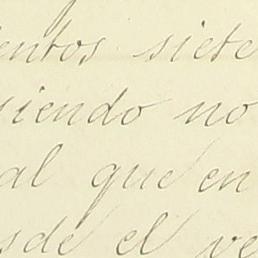 entos siete
iendo no
al que en
sde el ve